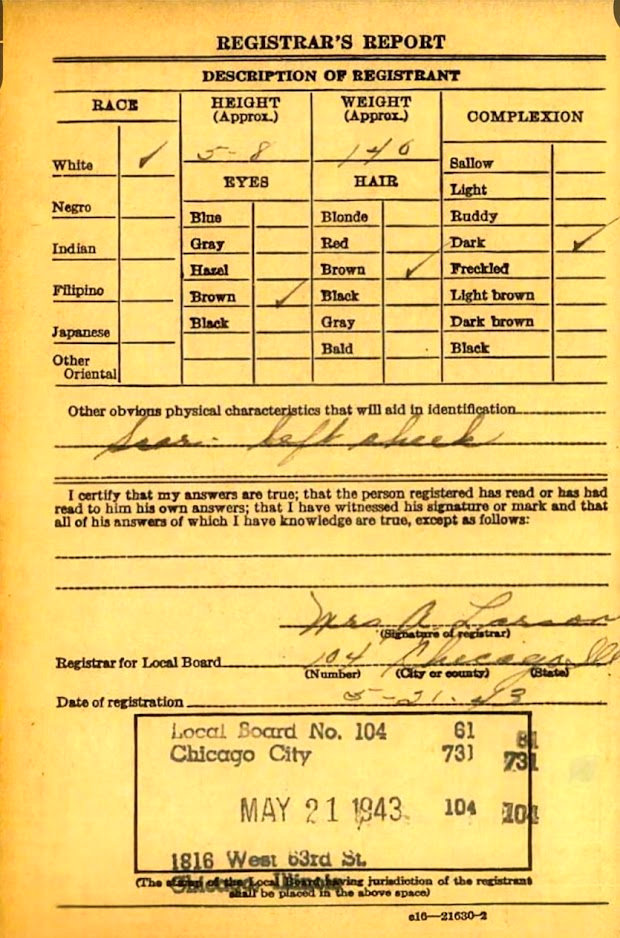 REGISTRAR'S REPORT
DESCRIPTION OF REGISTRANT
RACE
HEIGHT
(Approx.)
WEIGHT
(Approx.)
COMPLEXION
5-8
140
White ✓
Negro
Indian
Filipino
Japanese
Other
Oriental
EYES
Blue
Gray
Hazel
Brown ✓
Black
HAIR
Blonde
Red
Brown ✓
Black
Gray
Bald
Sallow
Light
Ruddy
Dark ✓
Freckled
Light brown
Dark brown
Black
Other obvious physical characteristics that will aid in identification
Scar - left cheek
I certify that my answers are true; that the person registered has read or has had
read to him his own answers; that I have witnessed his signature or mark and that
all of his answers of which I have knowledge are true, except as follows:
Mrs A Larson
(Signature of registrar)
Registrar for Local Board 104 Chicago Ill
(Number) (City or county) (State)
Date of registration 5-21-43
Local Board No. 104 61 81
Chicago City 731 731
MAY 21 1943 104 104
1816 West 63rd St.
Chicago, Illinois
(The stamp of the Local Board having jurisdiction of the registrant
shall be placed in the above space)
c16—21630-2